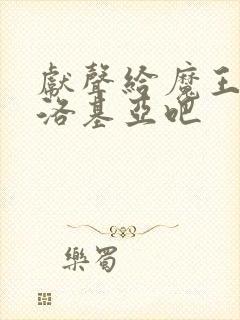 獻聲給魔王
洛基亞吧
樂蜀